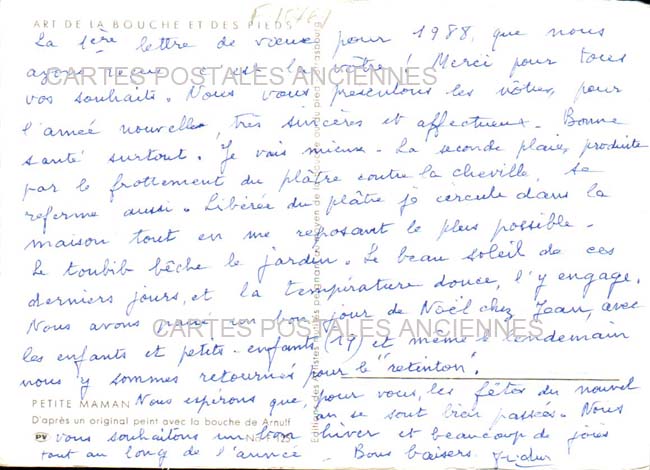 ART DE LA BOUCHE ET DES PIEDS
La 1ère lettre de vœux pour 1988, que nous
avons reçue c'est la vôtre ! Merci pour tous
CARTES POSTALES ANCIENNES
vos souhaits. Nous vous présentons les nôtres, pour
l'année nouvelle, très sincères et affectueux - Bonne
santé surtout. Je vais mieux - La seconde plaie, produite
par le frottement du plâtre contre la cheville, se
referme aussi. Libérée du plâtre je circule dans la
maison tout en me reposant le plus possible -
Le toubib bêche le jardin. Le beau soleil de ces
derniers jours, et la température douce, l'y engage.
Nous avons passé un bon jour de Noël chez Jean, avec
CARTES POSTALES ANCIENNES
les enfants et petits-enfants (19) et même le lendemain
nous y sommes retournés pour le "retinton".
PETITE MAMAN Nous espérons que, pour vous, les fêtes du nouvel
D'après un original peint avec la bouche de Arnulf
an se sont bien passées. Nous
PV vous souhaitons un bon hiver et beaucoup de joies
tout au long de l'année - Bons baisers.